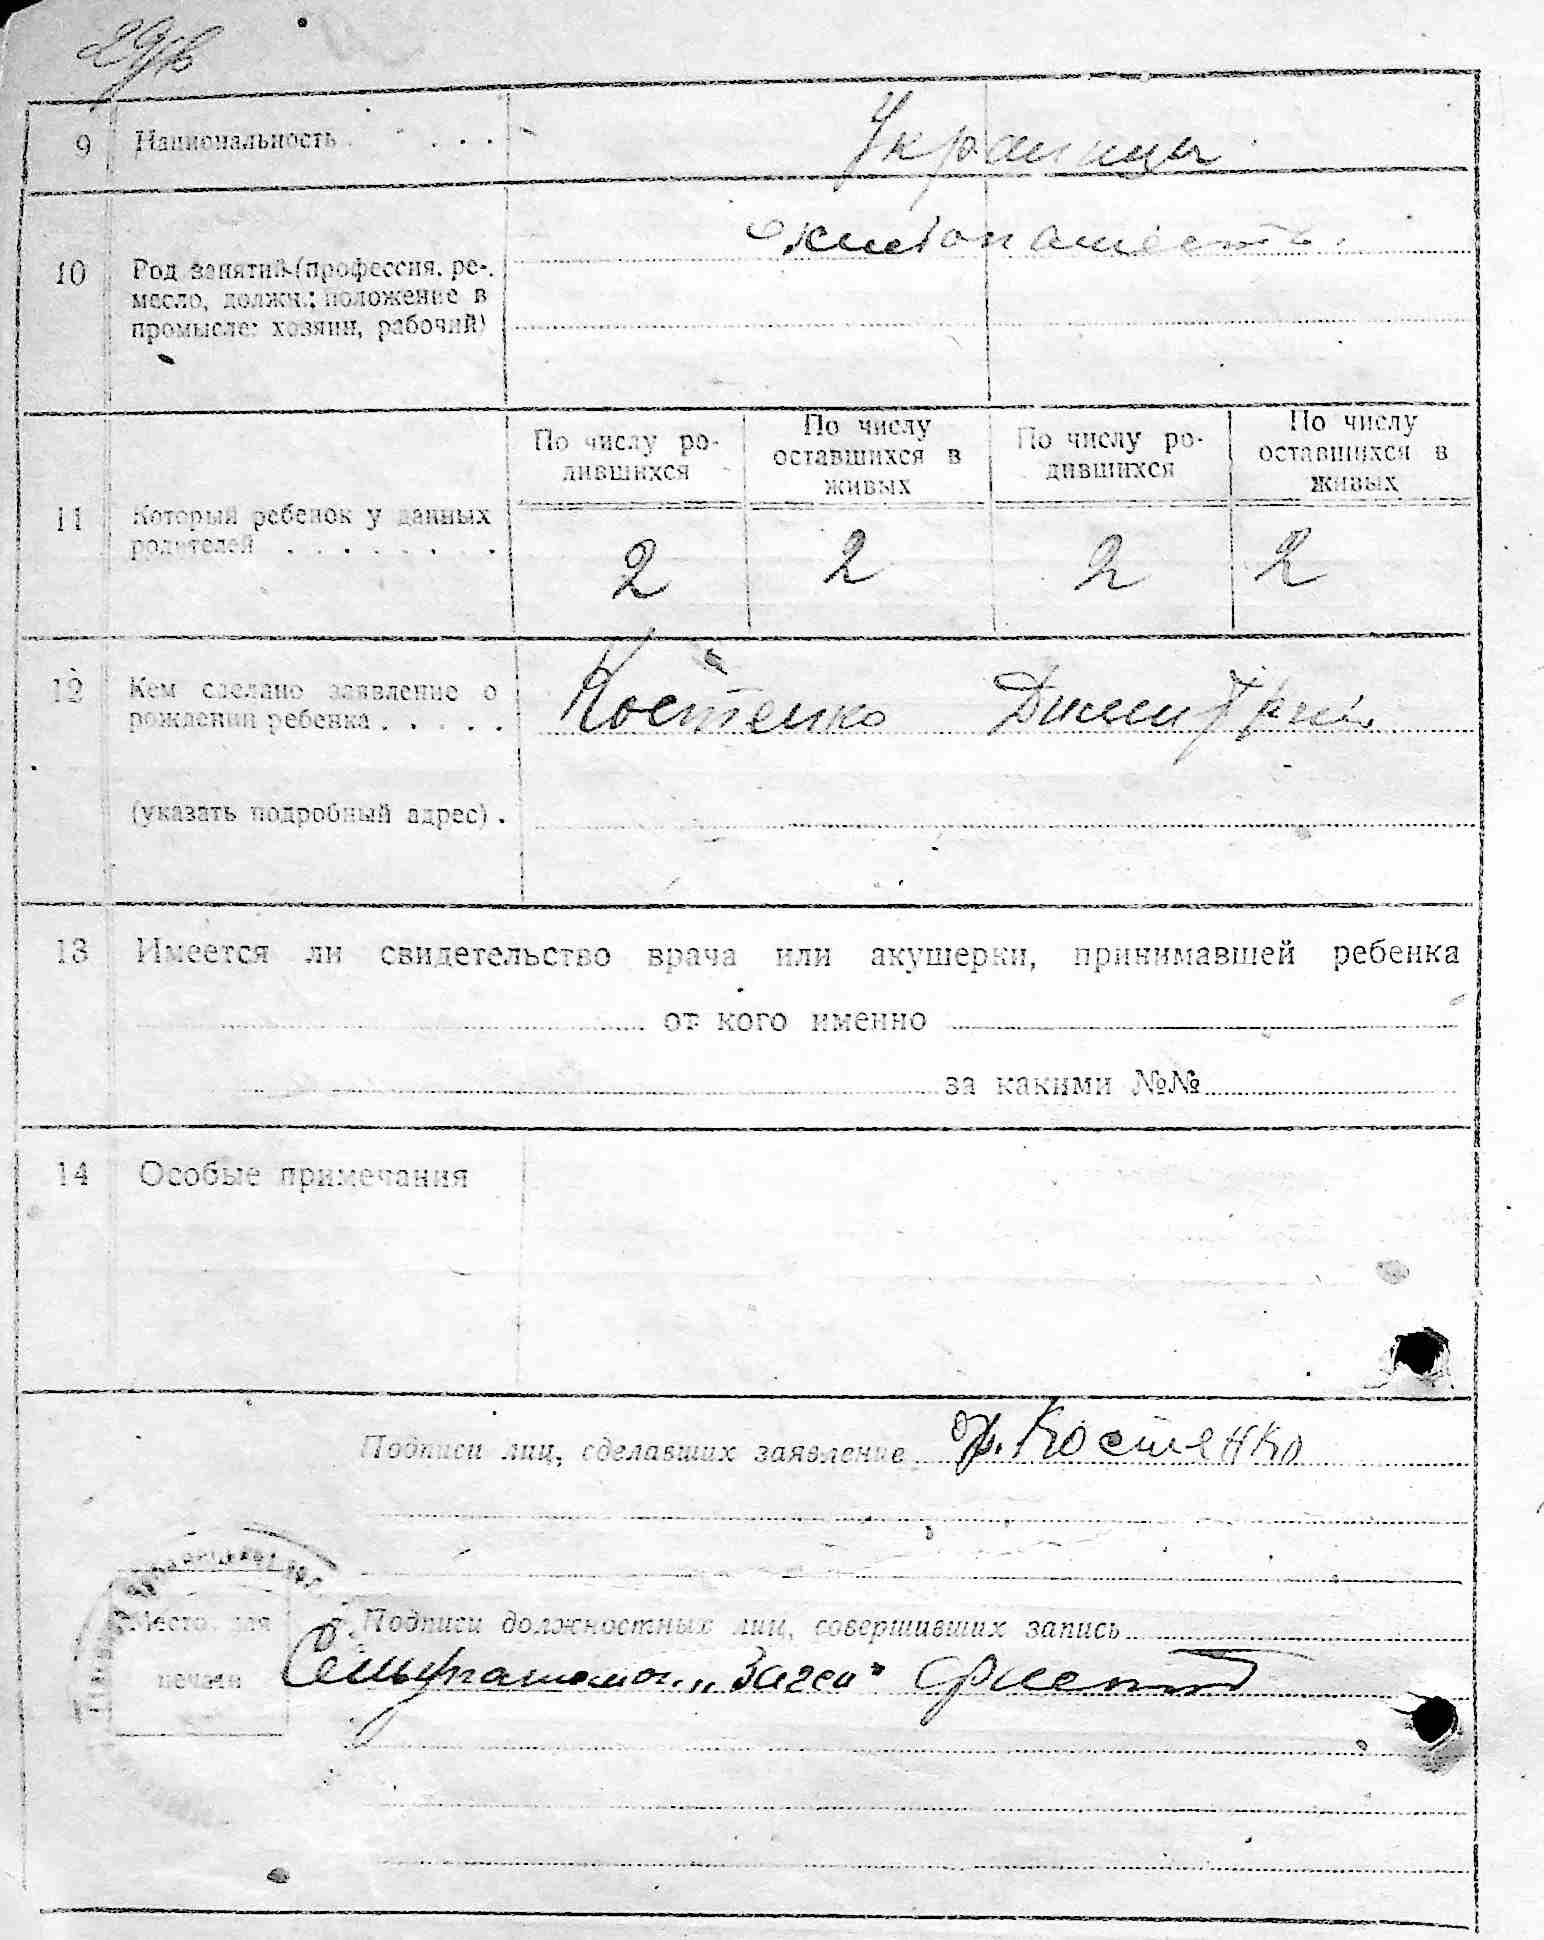 9 Национальность . . . .
Украинцы
10 Род занятий (профессия, ре-
месло, должн.; положение в
промысле: хозяин, рабочий)
хлебопашест
По числу ро-
дившихся
По числу
оставшихся в
живых
По числу ро-
дившихся
По числу
оставшихся в
живых
11 Который ребенок у данных
родителей . . . . . . . .
2 2 2 2
12 Кем сделано заявление о
рождении ребенка . . . . .
Костенко Димитрий
(указать подробный адрес) .
13 Имеется ли свидетельство врача или акушерки, принимавшей ребенка
от кого именно
за какими №№
14 Особые примечания
Подписи лиц, сделавших заявление Костенко
Место для
печати
Подписи должностных лиц, совершивших запись